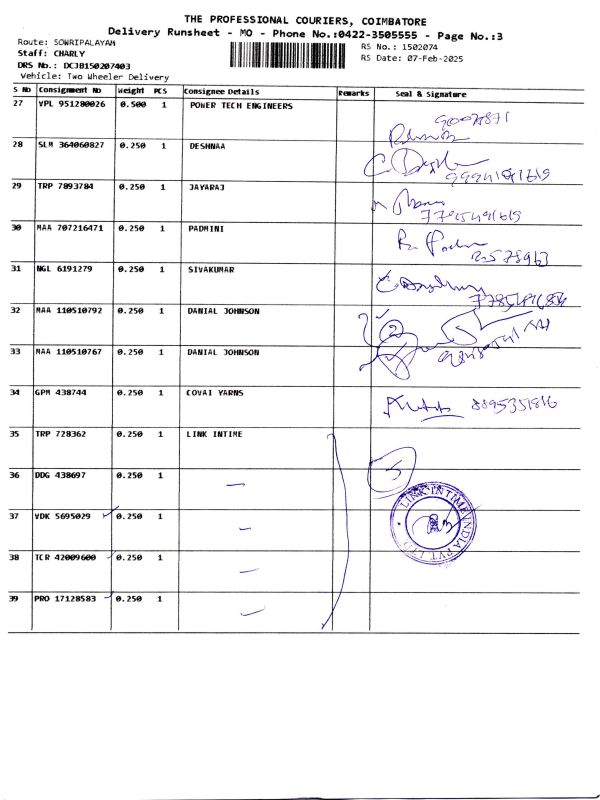 THE PROFESSIONAL COURIERS, COIMBATORE
Delivery Runsheet - MO - Phone No.:0422-3505555 - Page No.:3
Route: SOWRIPALAYAM
RS No.: 1502074
Staff: CHARLY
RS Date: 07-Feb-2025
DRS No.: DCJB150207403
Vehicle: Two Wheeler Delivery
S No Consignment No Weight PCS Consignee Details Remarks Seal & Signature
27 VPL 951280026 0.500 1 POWER TECH ENGINEERS
28 SLM 364060827 0.250 1 DESHNAA
29 TRP 7893784 0.250 1 JAYARAJ
30 MAA 707216471 0.250 1 PADMINI
31 NGL 6191279 0.250 1 SIVAKUMAR
32 MAA 110510792 0.250 1 DANIAL JOHNSON
2
33 MAA 110510767 0.250 1 DANIAL JOHNSON
34 GPM 438744 0.250 1 COVAI YARNS
35 TRP 728362 0.250 1 LINK INTIME
5
36 DDG 438697 0.250 1
LINK INTIME INDIA PVT LTD
37 VDK 5695029 0.250 1
38 TCR 42009600 0.250 1
39 PRO 17128583 0.250 1